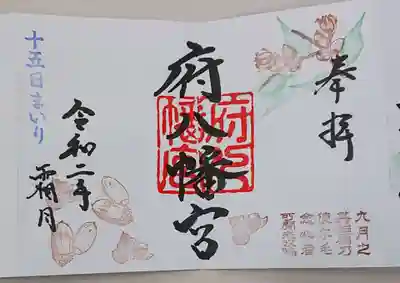 奉拝
府八幡宮
令和二年
霜月
十五日まいり
九月之